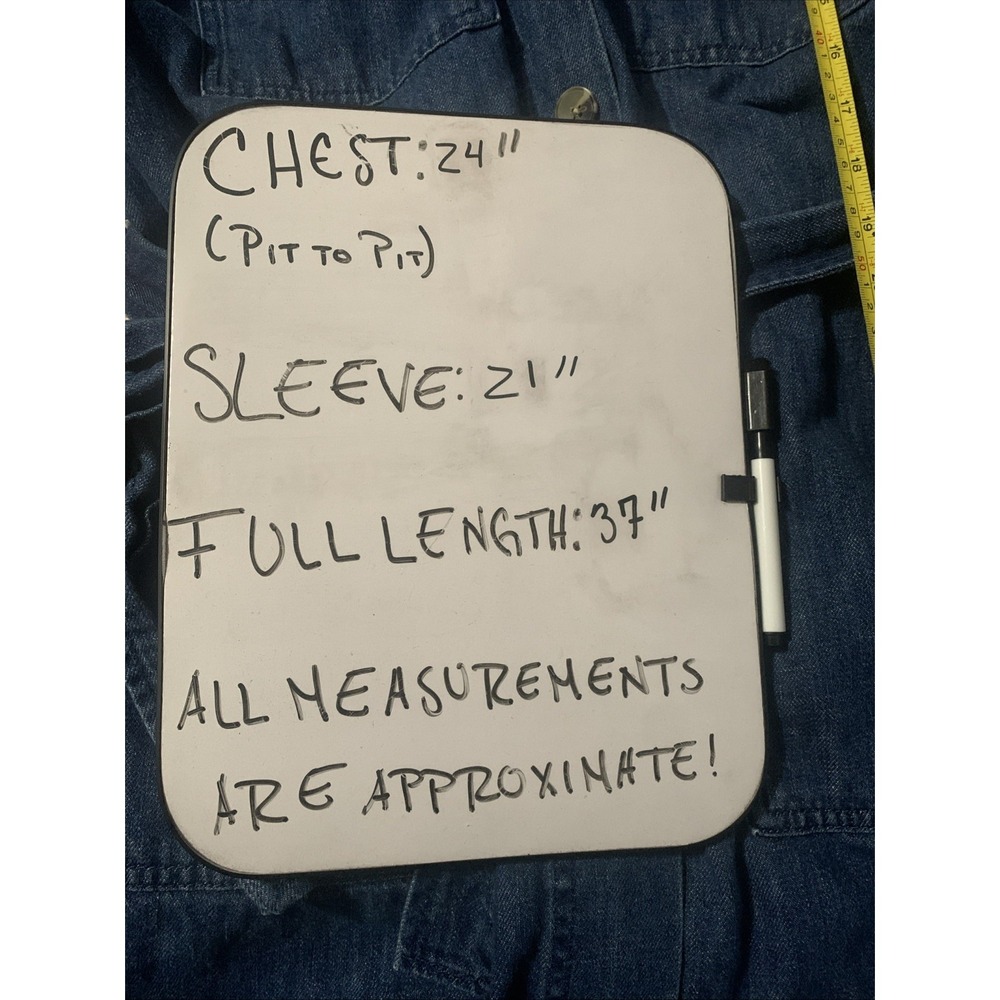 CHEST: 24"
(PIT TO PIT)
SLEEVE: 21"
FULL LENGTH: 37"
ALL MEASUREMENTS
ARE APPROXIMATE!
16
17
18
19
40
50